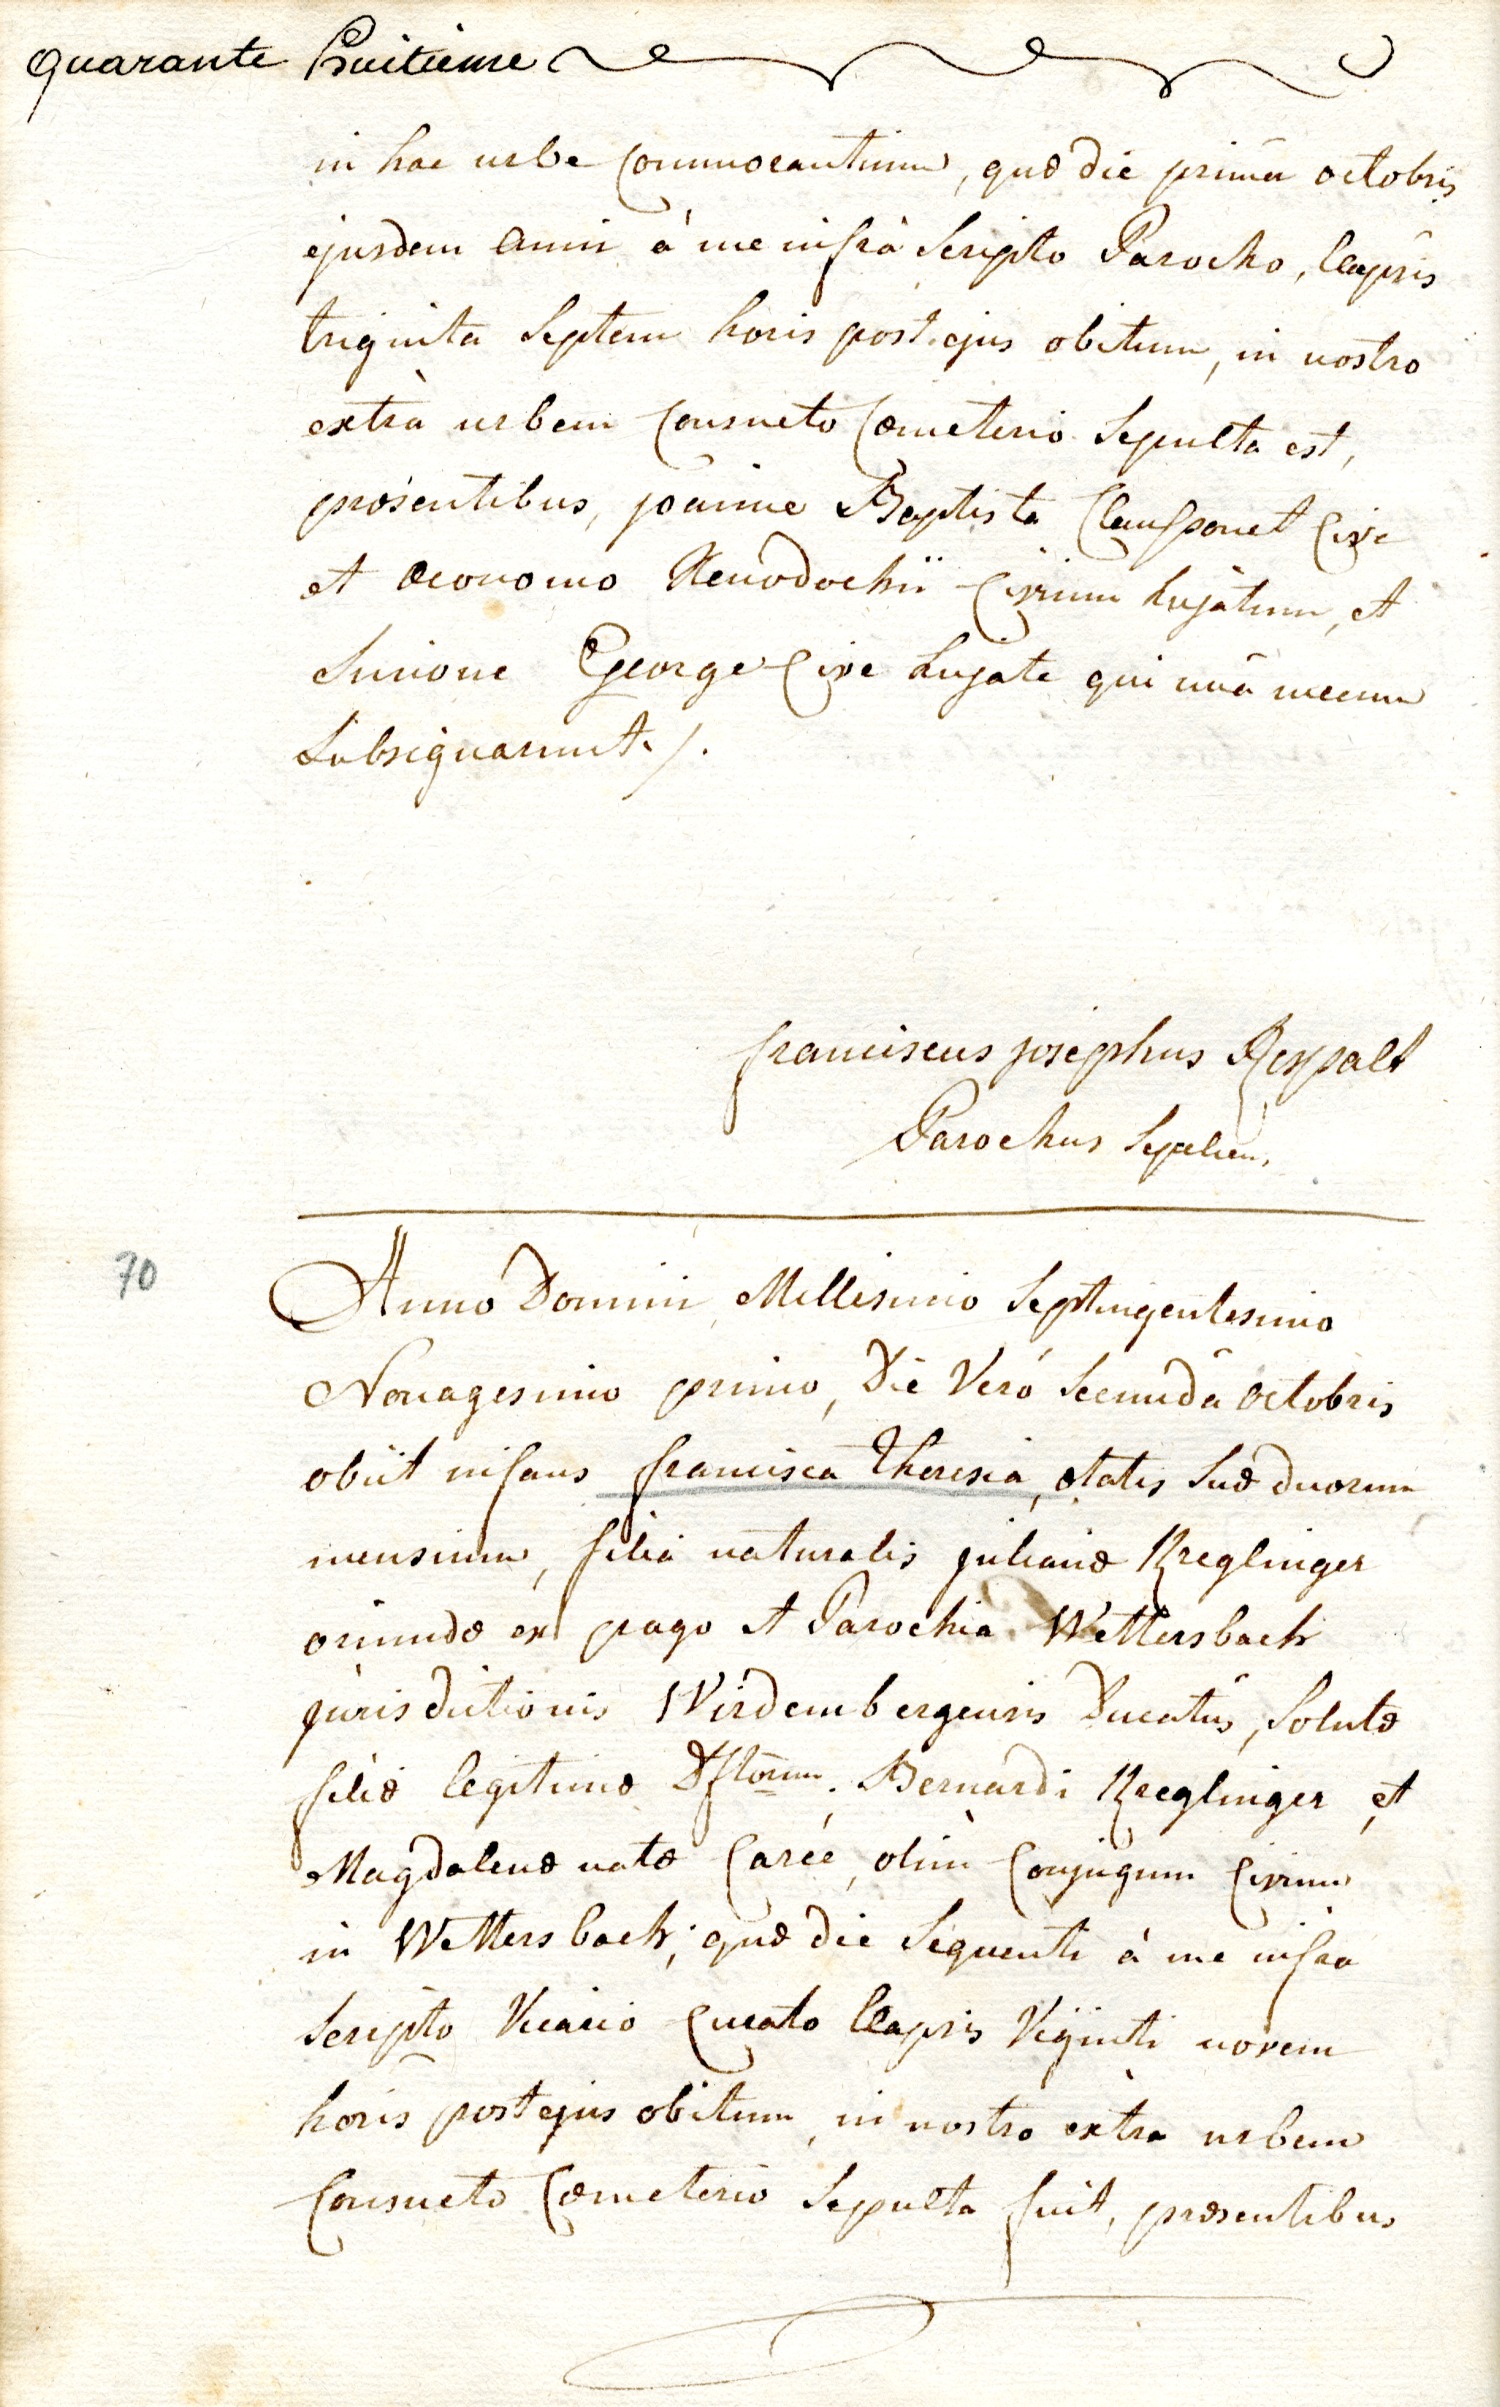 quarante huitieme
in hac urbe Commorantium, quæ die primâ octobris
ejusdem anni à me infrà Scripto Parocho, Elapsis
triginta Septem horis post ejus obitum, in nostro
extrà urbem Consueto Cœmeterio Sepulta est,
præsentibus, joanne Baptista Clausponet Cive
et œconomo Xenodochii Civium hujatum, et
Simone George Cive hujate qui unà mecum
Subsignarunt ./.
franciscus josephus Rexpalt
Parochus Sepelien.
70
Anno Domini Millesimo Septingentesimo
Nonagesimo primo, Die Verò Secundâ octobris
obiit infans francisca Theresia, ætatis Suæ duorum
mensium, filia naturalis julianæ Kreglinger
oriundæ ex pago et Parochia Wettersbach
jurisdictionis Wirdembergensis Ducatûs, Solutæ
filiæ legitimæ Dfctorum. Bernardi Kreglinger et
Magdalenæ natæ Carée, olim Conjugum Civium
in Wettersbach; quæ die Sequenti à me infra
Scripto Vicario Curato Elapsis Viginti novem
horis post ejus obitum, in nostro extra urbem
Consueto Cœmeterio Sepulta fuit, præsentibus